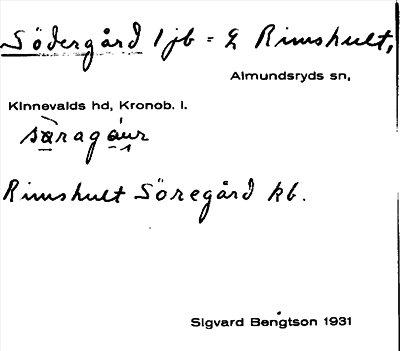 Södergård 1 jb = L Rimshult,
Almundsryds sn,
Kinnevalds hd, Kronob. l.
sàragáur
Rimshult Söregård kb.
Sigvard Bengtson 1931